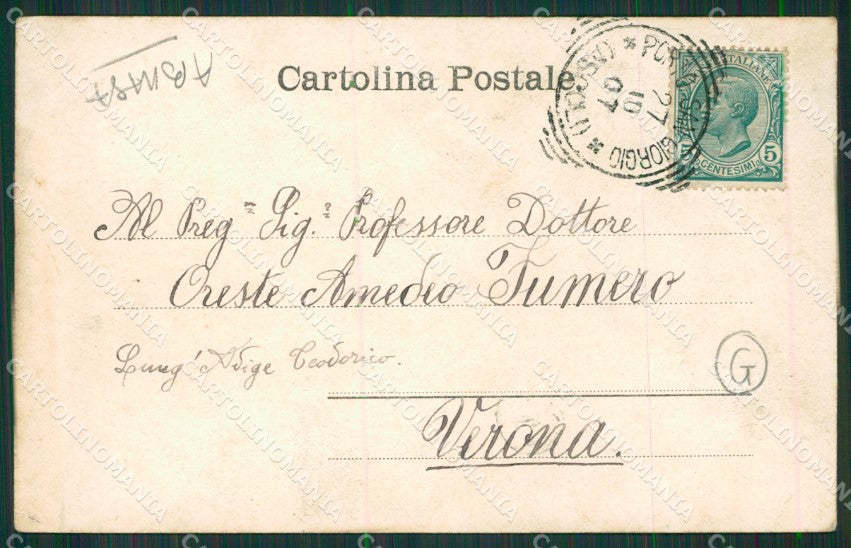 Cartolina Postale
GIORGIO * (ASCOLI) *
27
10
07
ITALIANE
CENTESIMI 5
Al Preg.mo Sig.r Professore Dottore
Oreste Amedeo Fumero
Lung'Adige Teodorico.
G
Verona.
CARTOLINOMANIA